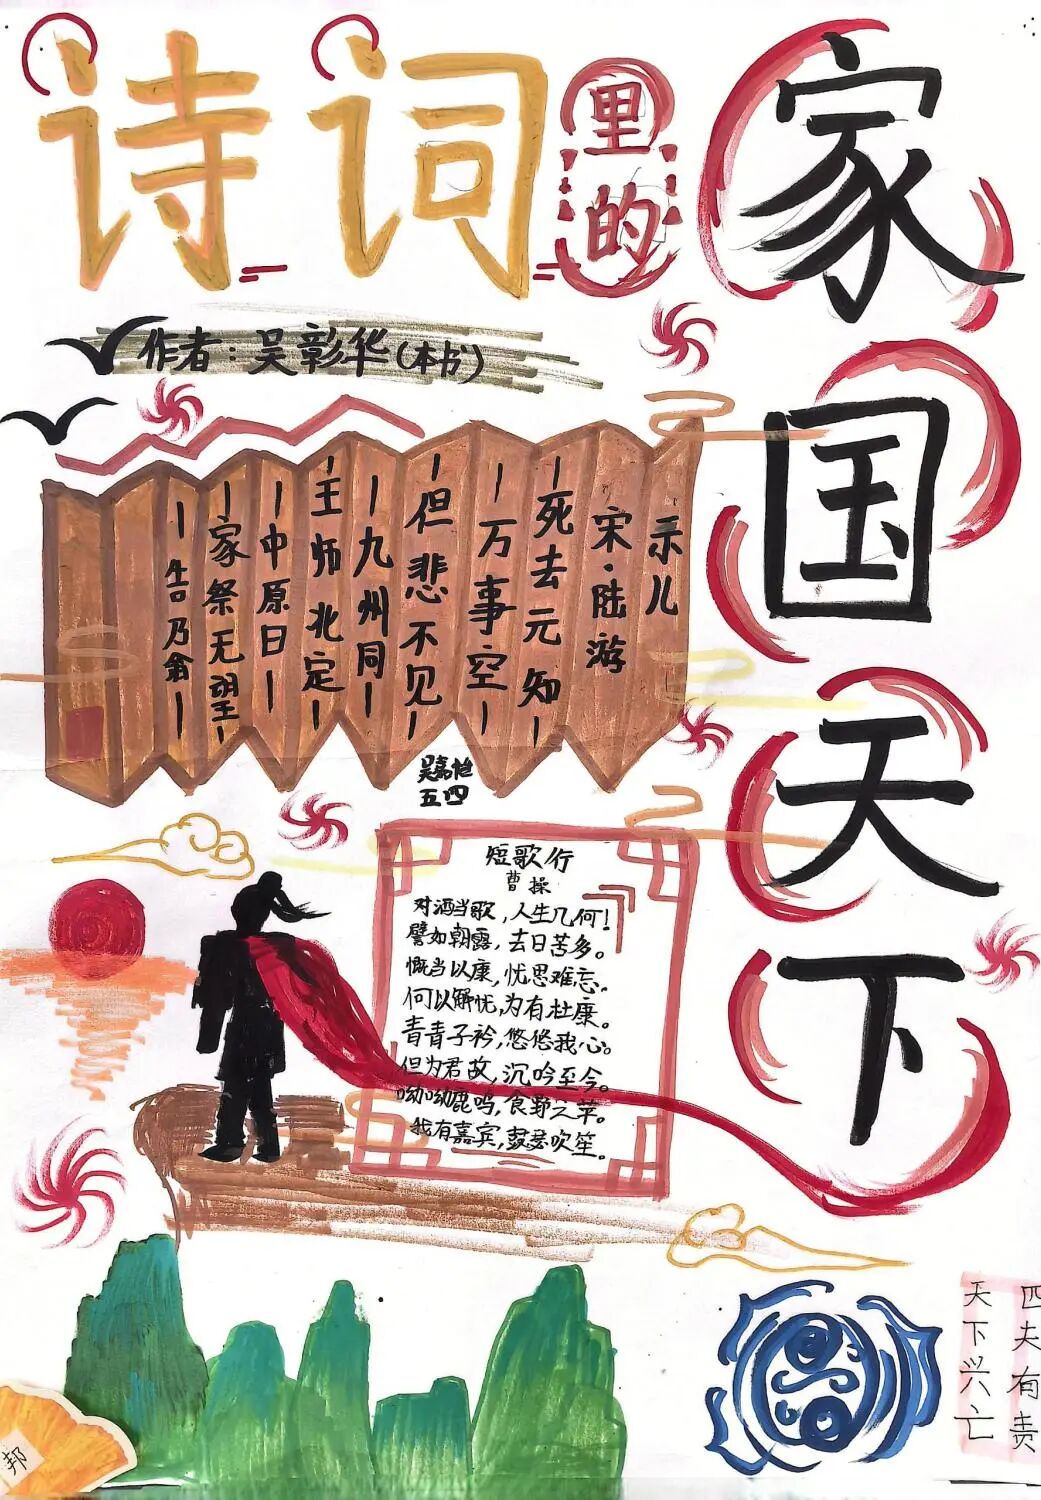 诗词里的
家国天下
作者:吴彰华(本书)
示儿
宋·陆游
死去元知
万事空
但悲不见
九州同
王师北定
中原日
家祭无望
告乃翁
吴嘉怡
五四
短歌行
曹操
对酒当歌,人生几何!
譬如朝露,去日苦多。
慨当以康,忧思难忘。
何以解忧,为有杜康。
青青子衿,悠悠我心。
但为君故,沉吟至今。
呦呦鹿鸣,食野之苹。
我有嘉宾,鼓瑟吹笙。
天下兴亡
匹夫有责
邦